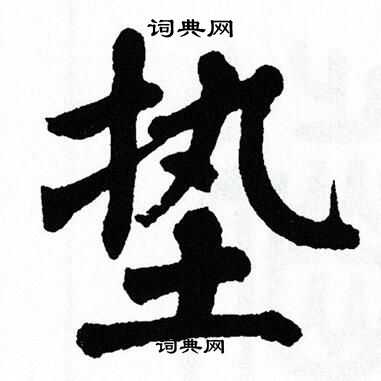 词典网
垫
词典网